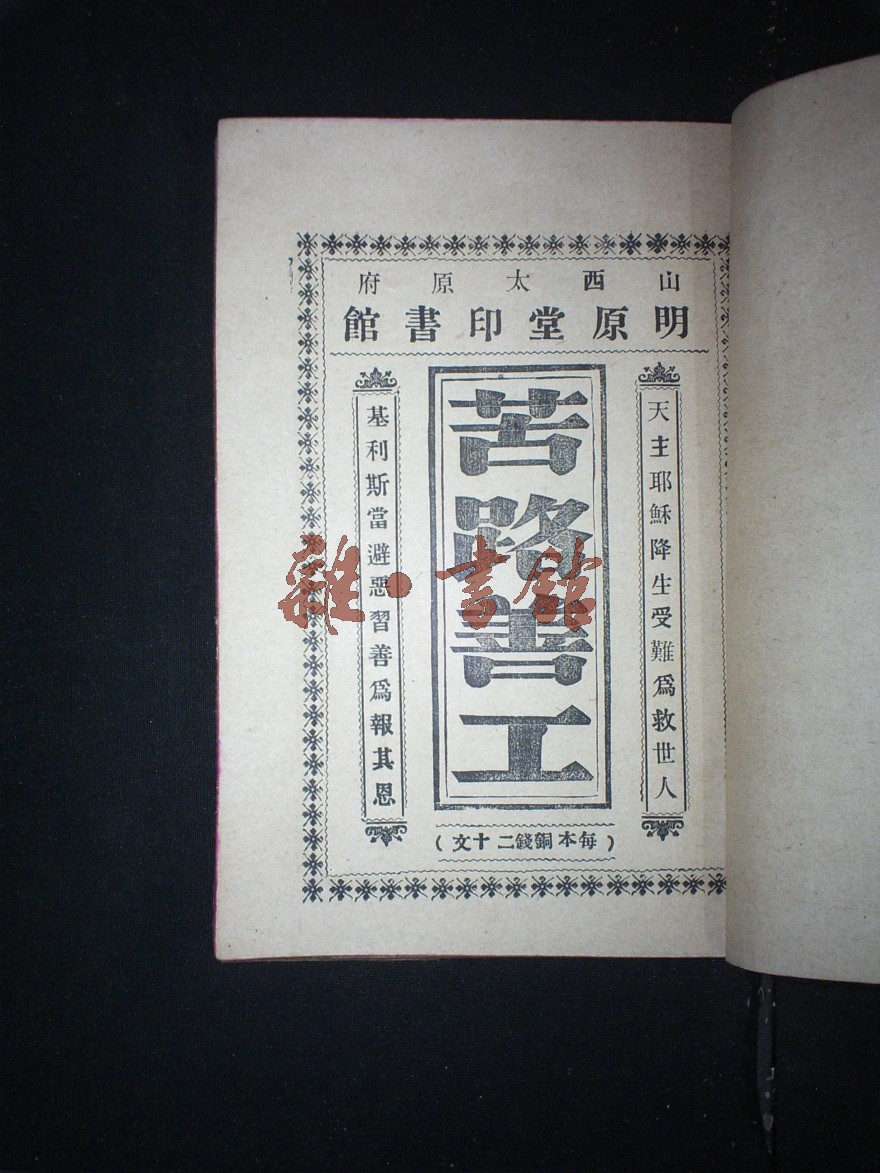 山西太原府
明原堂印書館
天主耶穌降生受難爲救世人
苦路善工
基利斯當避惡習善爲報其恩
(每本銅錢二十文)
雜·書館